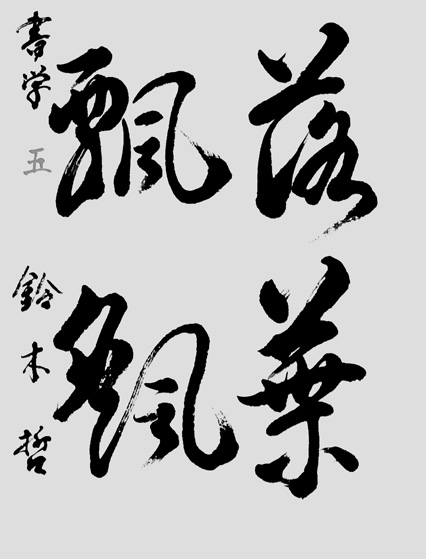 落葉
飄颻
書学 五 鈴木哲